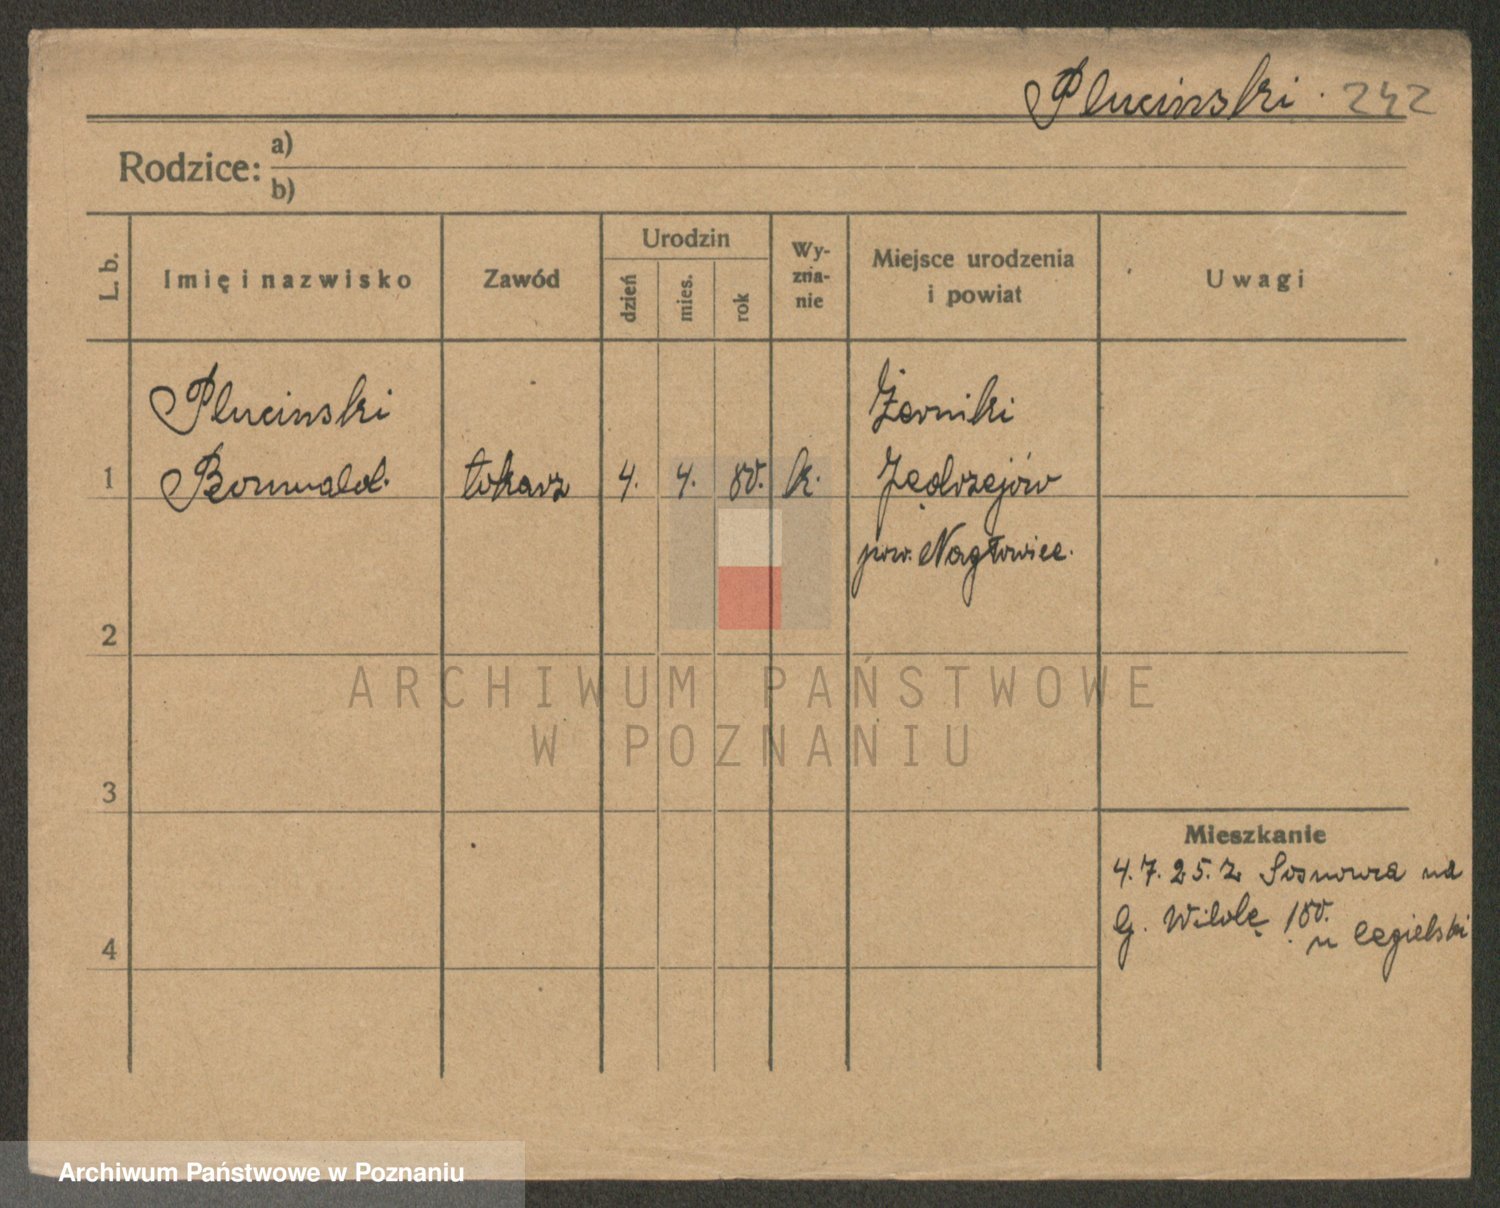 Plucinski. 242
Rodzice:
a)
b)
L. b.
Imię i nazwisko
Zawód
Urodzin
dzień
mies.
rok
Wy-
zna-
nie
Miejsce urodzenia
i powiat
Uwagi
Plucinski
1 Romuald. tokarz 4. 4. 80. k.
Żerniki
Jędrzejów
pow. Nagłowice.
2
3
4
Mieszkanie
4. 7. 25. z Sosnowca na
G. Wildę 180.
u Cegielski
ARCHIWUM PAŃSTWOWE
W POZNANIU
Archiwum Państwowe w Poznaniu